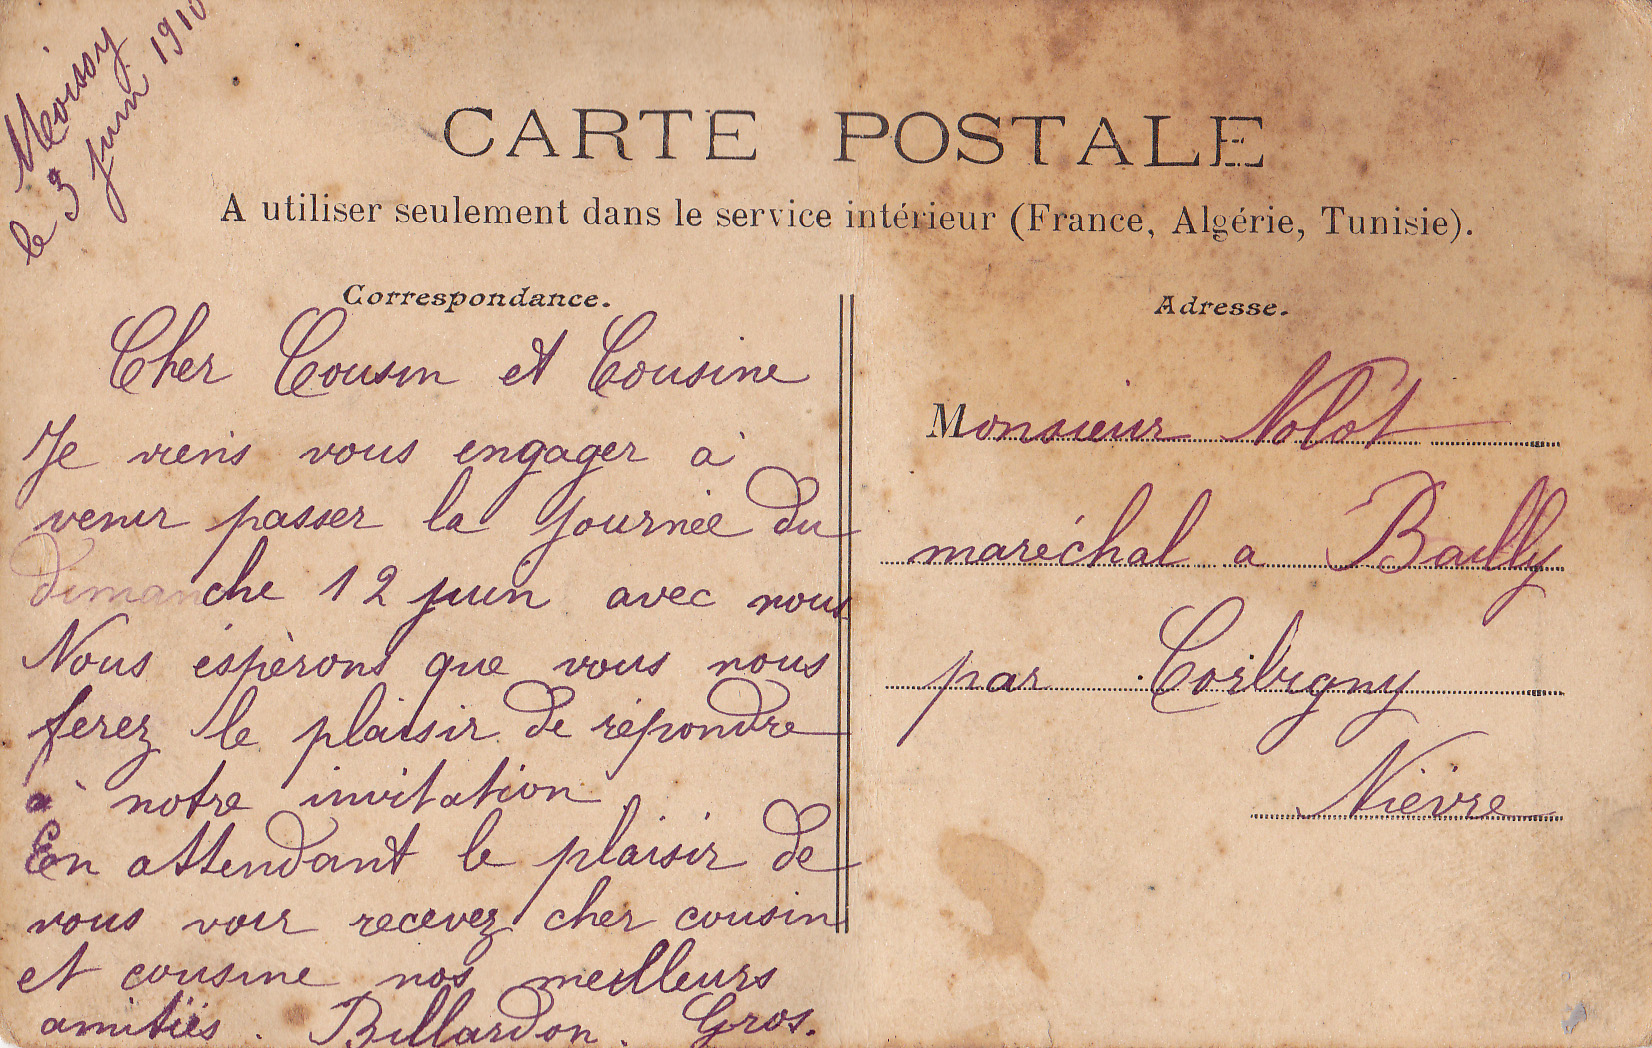 Moissy
le 3 juin 1910
CARTE POSTALE
A utiliser seulement dans le service intérieur (France, Algérie, Tunisie).
Correspondance.
Cher Cousin et Cousine
Je viens vous engager à
venir passer la journée du
dimanche 12 juin avec nous
Nous éspèrons que vous nous
ferez le plaisir de répondre
à notre invitation.
En attendant le plaisir de
vous voir recevez cher cousin
et cousine nos meilleurs
amitiés. Billardon. Gros.
Adresse.
Monsieur Nolot
maréchal a Bailly
par Corbigny
Nièvre